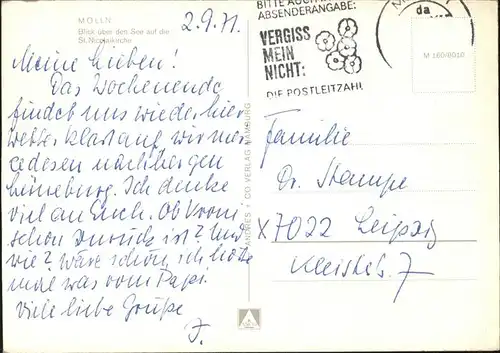 MÖLLN
Blick über den See auf die
St. Nicolaikirche
2.9.71.
Meine Lieben!
Das Wochenende
findet uns wieder hier
wir
Lüneburg. Ich denke
viel an Euch. Ob
schon zurück ist? Und
wie? Wäre schön, ich hörte
mal was vom Papi.
Viele liebe Grüße
J.
HANNES + CO VERLAG HAMBURG
BITTE AUCH
ABSENDERANGABE:
VERGISS
MEIN
NICHT:
DIE POSTLEITZAHL
da
M 160/8010
Familie
Dr. Stampe
X 7022 Leipzig
Kleiststr. 7